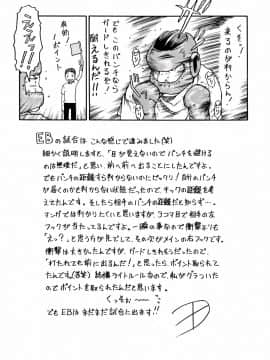 来るのが判らん!
でもこのパンチなら
ガードしきれるぞ!
耐えるんだ!!
赤的
1ポイント
ええっ!!
EBの試合はこんな感じで進みました(笑)
細かく説明しますと、「目が見えないのでパンチを避ける
のは無理だ」と思い、前へ前へ出ることにしたんですよ。
でもパンチの距離すら判らないのにビックリ!自分のパンチ
が届くのかも判らない状態だったので、キックの距離も考
えてたんです。そしたら相手のパンチの距離だと知らず…。
マンガでは判りづらいと思いますが、ラコマ目で相手の左
フックが当たってるんですよ。一瞬の事なので衝撃よりも
「えっ?」と思う方が先でして、その次がメインの右フックです。
衝撃は大きかったんですが、ガードしきれそうだったので、
「打たれても前に出るんだ!」と思ったらポイント取られて
たんですね(苦笑) 結構ライトルールなので、私がグラついた
のでポイントを取られたんだと思います。
くっそぉ〜
でもEBはまだまだ試合に出ます!!